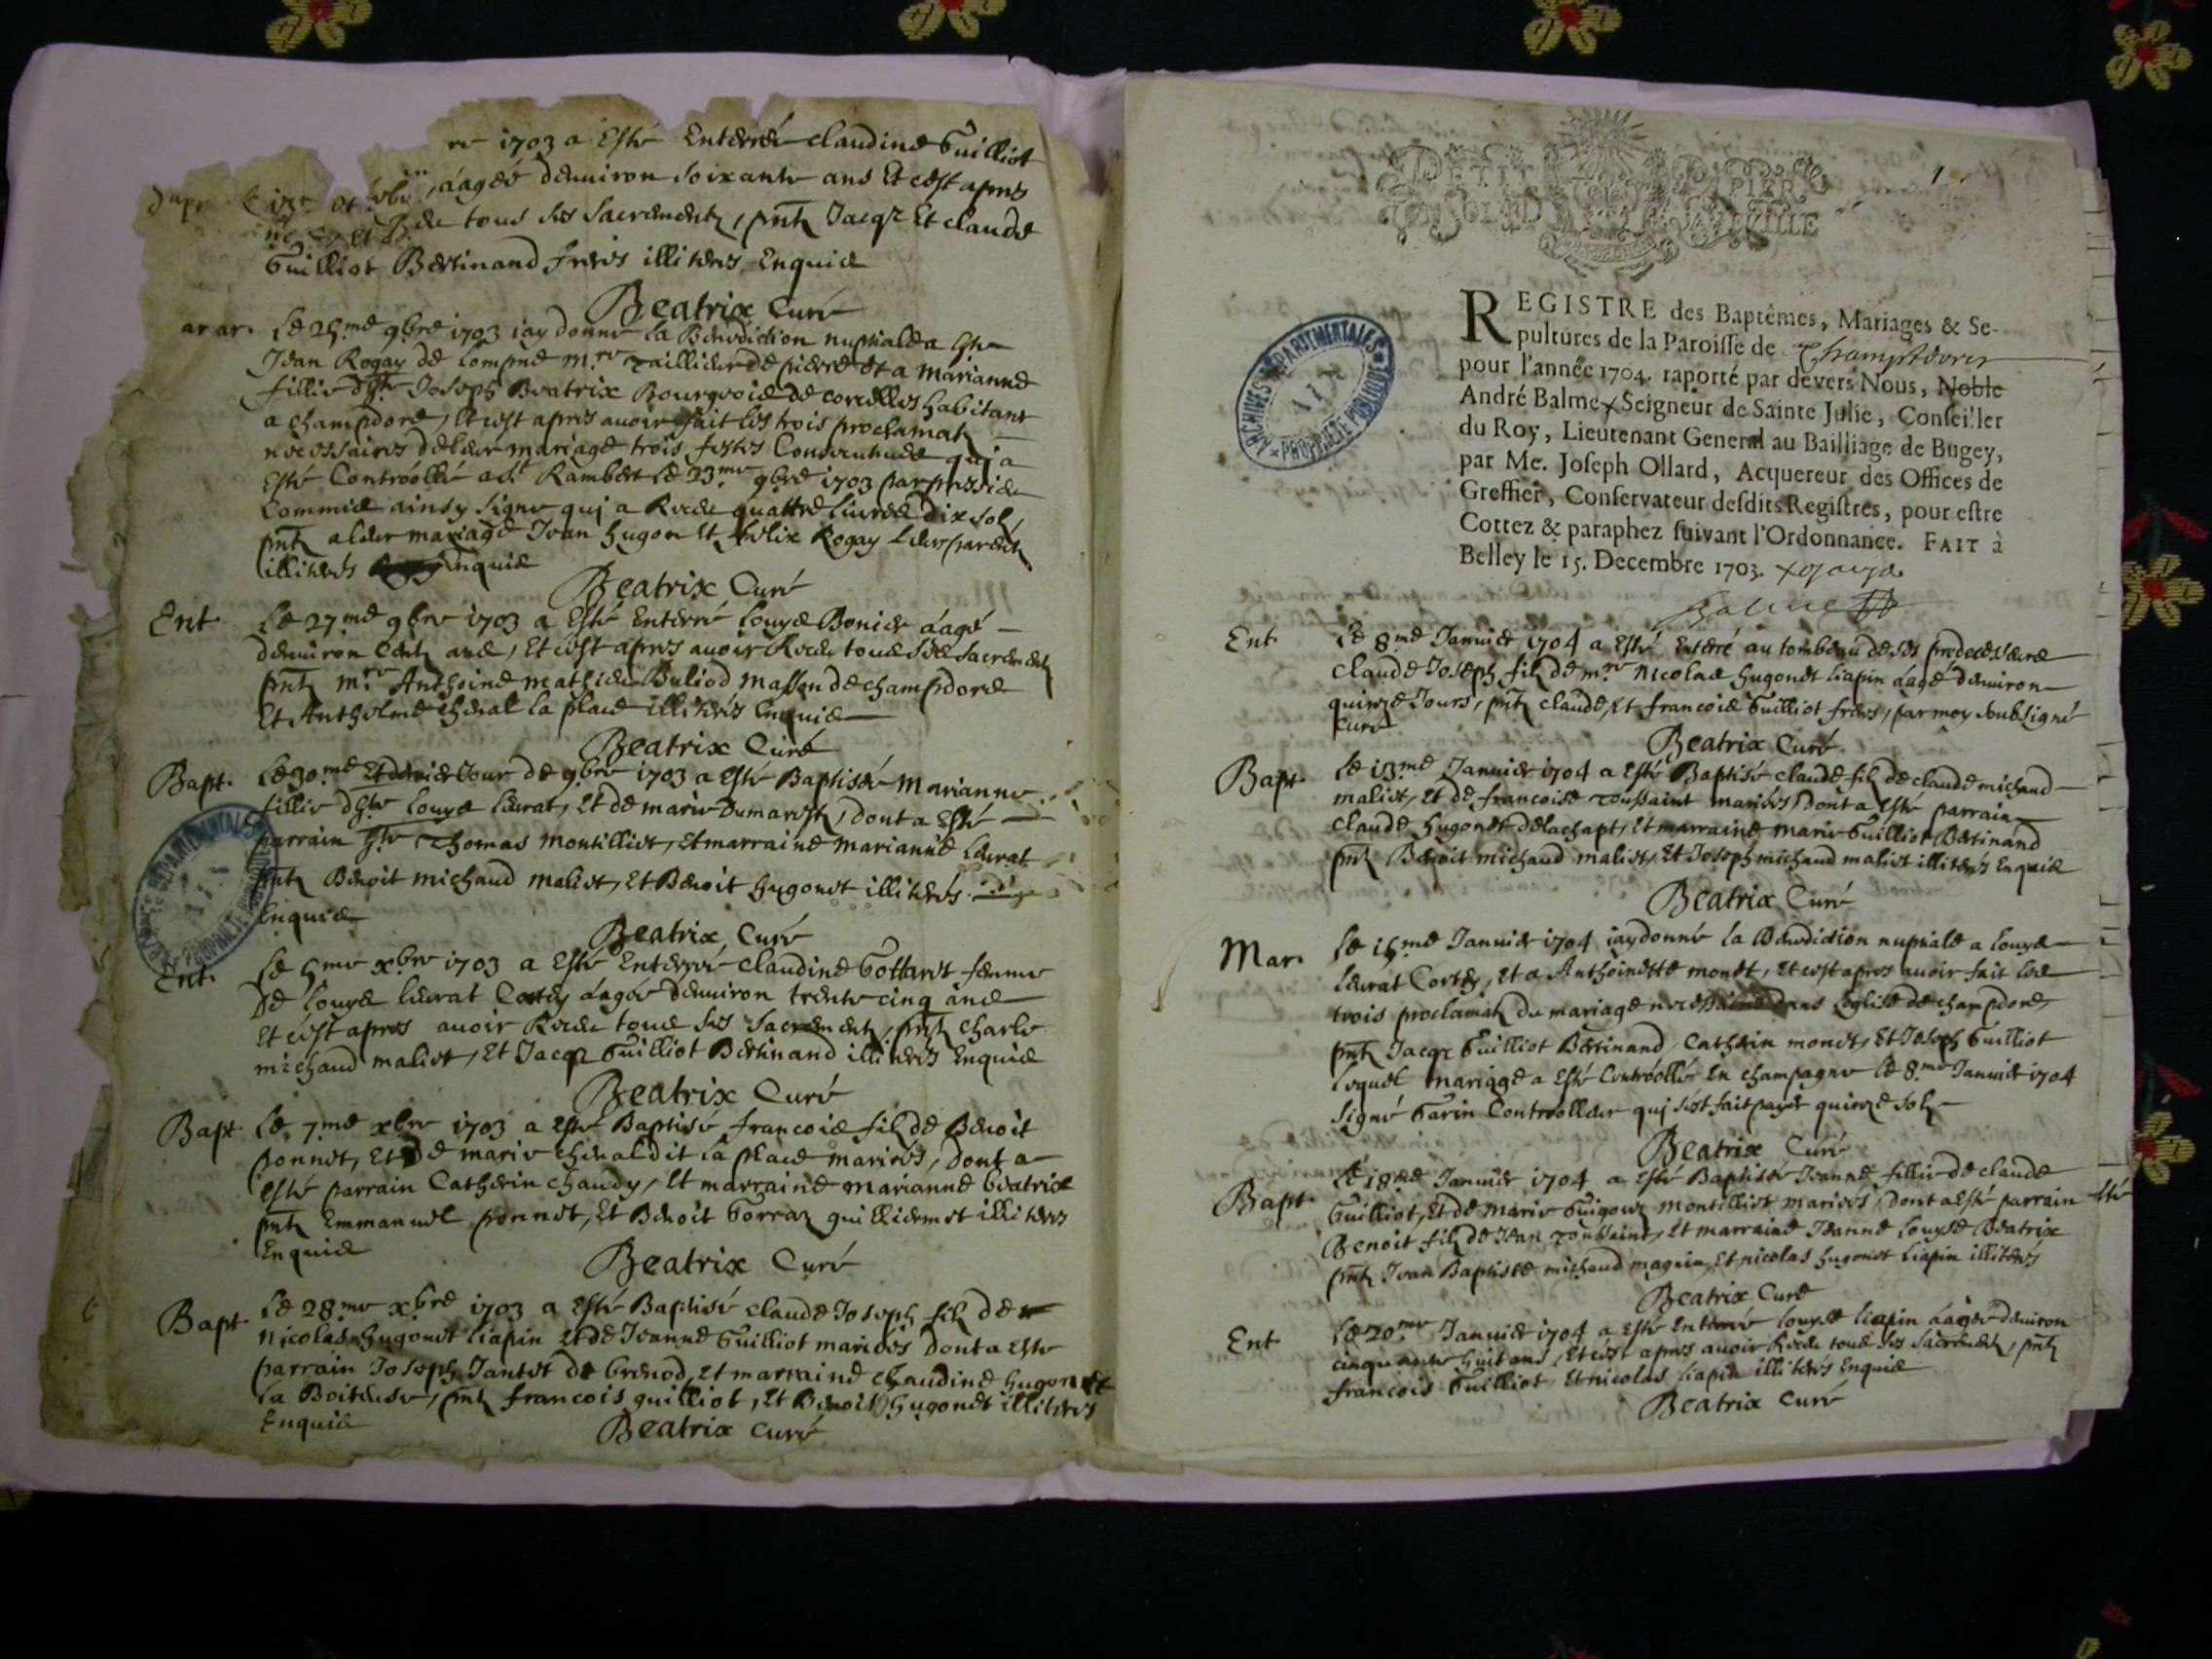 1703 a Esté Enterrée Claudine Guilliot
aagée denuiron soixante ans Et cest apres
de tous ses Sacrements, pnts Jacqz Et claude
Guilliot Bertinand freres illiteres Enquis
Beatrix Curé
ar ar. Le 25me 9bre 1703 iay donné la Benediction nuptiale a hte
Jean Rogay de Lompne mre Taillieur de pierre et a Marianne
fillie dhte Joseph Beatrix Bourgeois de corcelles habitant
a champdore, Et cest apres auoir fait les trois proclamats
necessaires de leur mariage trois festes Consecutiues qui a
Esté Controollé a St Rambert Le 23me 9bre 1703 par
Commis ainsy signé qui a Receu quattre liures dix sols
pnts a leur mariage Jean hugon Et felix Rogay Leurs parents
illiteres Enquis
Beatrix Curé
Ent. Le 27me 9bre 1703 a Esté Enterré Louys Bonier aagé
denuiron Cent ans, Et cest apres auoir Receu tous ses sacrements
pnts mre Anthoine mathieu Buliod masson de champdore
Et Anthelme cheual la place illiteres Enquis
Beatrix Curé
Bapt. Le 30me Et dernier Jour de 9bre 1703 a Esté Baptisée Marianne
fillie dhte Louys Leurat, Et de marie Dumarest, dont a Esté
parrain hte Thomas montilliet, Et marraine marianne Leurat
pnts Benoit michaud maliet, Et Benoit hugonet illiteres
Enquis
Beatrix Curé
Ent. Le 5me xbre 1703 a Esté Enterrée Claudine Gottaret femme
De Louys Leurat Cortey aagée denuiron trente cinq ans
Et cest apres auoir Receu tous ses sacrements, pnts charle
michaud maliet, Et Jacqz Guilliot Bertinand illiteres Enquis
Beatrix Curé
Bapt. Le 7me xbre 1703 a Esté Baptisé francois fils de Benoit
ponnet, Et de marie cheual dit la place mariées, dont a
esté parrain Catherin chaudy, Et marraine marianne beatrix
pnts Emmanuel ponnet, Et Benoit Gorraz guilliermet illiteres
Enquis
Beatrix Curé
Bapt. Le 28me xbre 1703 a Esté Baptisé claude Joseph fils de
Nicolas hugonet liapin Et de Jeanne Guilliot mariées dont a esté
parrain Joseph Jantet de brenod, Et marraine claudine hugonet
la Boiteuse, pnts francois guilliot, Et Benoit hugonet illiteres
Enquis
Beatrix Curé
ARCHIVES DEPARTEMENTALES
AIN
PROPRIETE PUBLIQUE
1
PETIT PAPIER
REGISTRE des Baptêmes, Mariages & Se-
pultures de la Paroisse de Champdores
pour l'année 1704. raporté par devers Nous, Noble
André Balme x Seigneur de Sainte Julie, Conseiller
du Roy, Lieutenant General au Bailliage de Bugey,
par Me. Joseph Ollard, Acquereur des Offices de
Greffier, Conservateur desdits Registres, pour estre
Cottez & paraphez suivant l'Ordonnance. FAIT à
Belley le 15. Decembre 1703.
Balme
ARCHIVES DEPARTEMENTALES
AIN
PROPRIETE PUBLIQUE
Ent. Le 8me Januier 1704 a Esté Enterré au tombeau de ses predecesseurs
Claude Joseph fils de mre Nicolas hugonet liapin aagé denuiron
quinze Jours, pnts claude, Et francois Guilliot freres, par moy soubsigné
Curé
Beatrix Curé
Bapt. Le 13me Januier 1704 a Esté Baptisé claude fils de claude michaud
maliet, Et de francoise Toussaint mariées, dont a Esté parrain
claude hugonet delachapt, Et marraine marie Guilliot Bertinand
pnts Benoit michaud maliet, Et Joseph michaud maliet illiteres Enquis
Beatrix Curé
Mar. Le 15me Januier 1704 iay donné la Benediction nuptiale a Louys
Leurat Cortey, Et a Anthoinette monet, Et cest apres auoir fait les
trois proclamats du mariage necessaires dans Leglise de champdore,
pnts Jacqz Guilliot Bertinand, Catherin monet, Et Joseph Guilliot
Lequel mariage a Esté Controollé En champagne Le 8me Januier 1704
signé Garin Controolleur qui sest fait payer quinze sols
Beatrix Curé
Bapt. Le 18me Januier 1704 a Esté Baptisée Jeanne fillie de claude
Guilliot, Et de marie Guigouz montilliet mariées, dont a Esté parrain
Benoit fils de Jean Toussaint, Et marraine Jeanne Louyse Beatrix
pnts Jean Baptiste michaud magnin, Et nicolas hugonet liapin illiteres
Beatrix Curé
Ent. Le 20me Januier 1704 a Esté Enterrée Louyse liapin aagée denuiron
cinquante huit ans, Et cest apres auoir Receu tous ses sacrements, pnts
francois Guilliot, Et nicolas liapin illiteres Enquis
Beatrix Curé